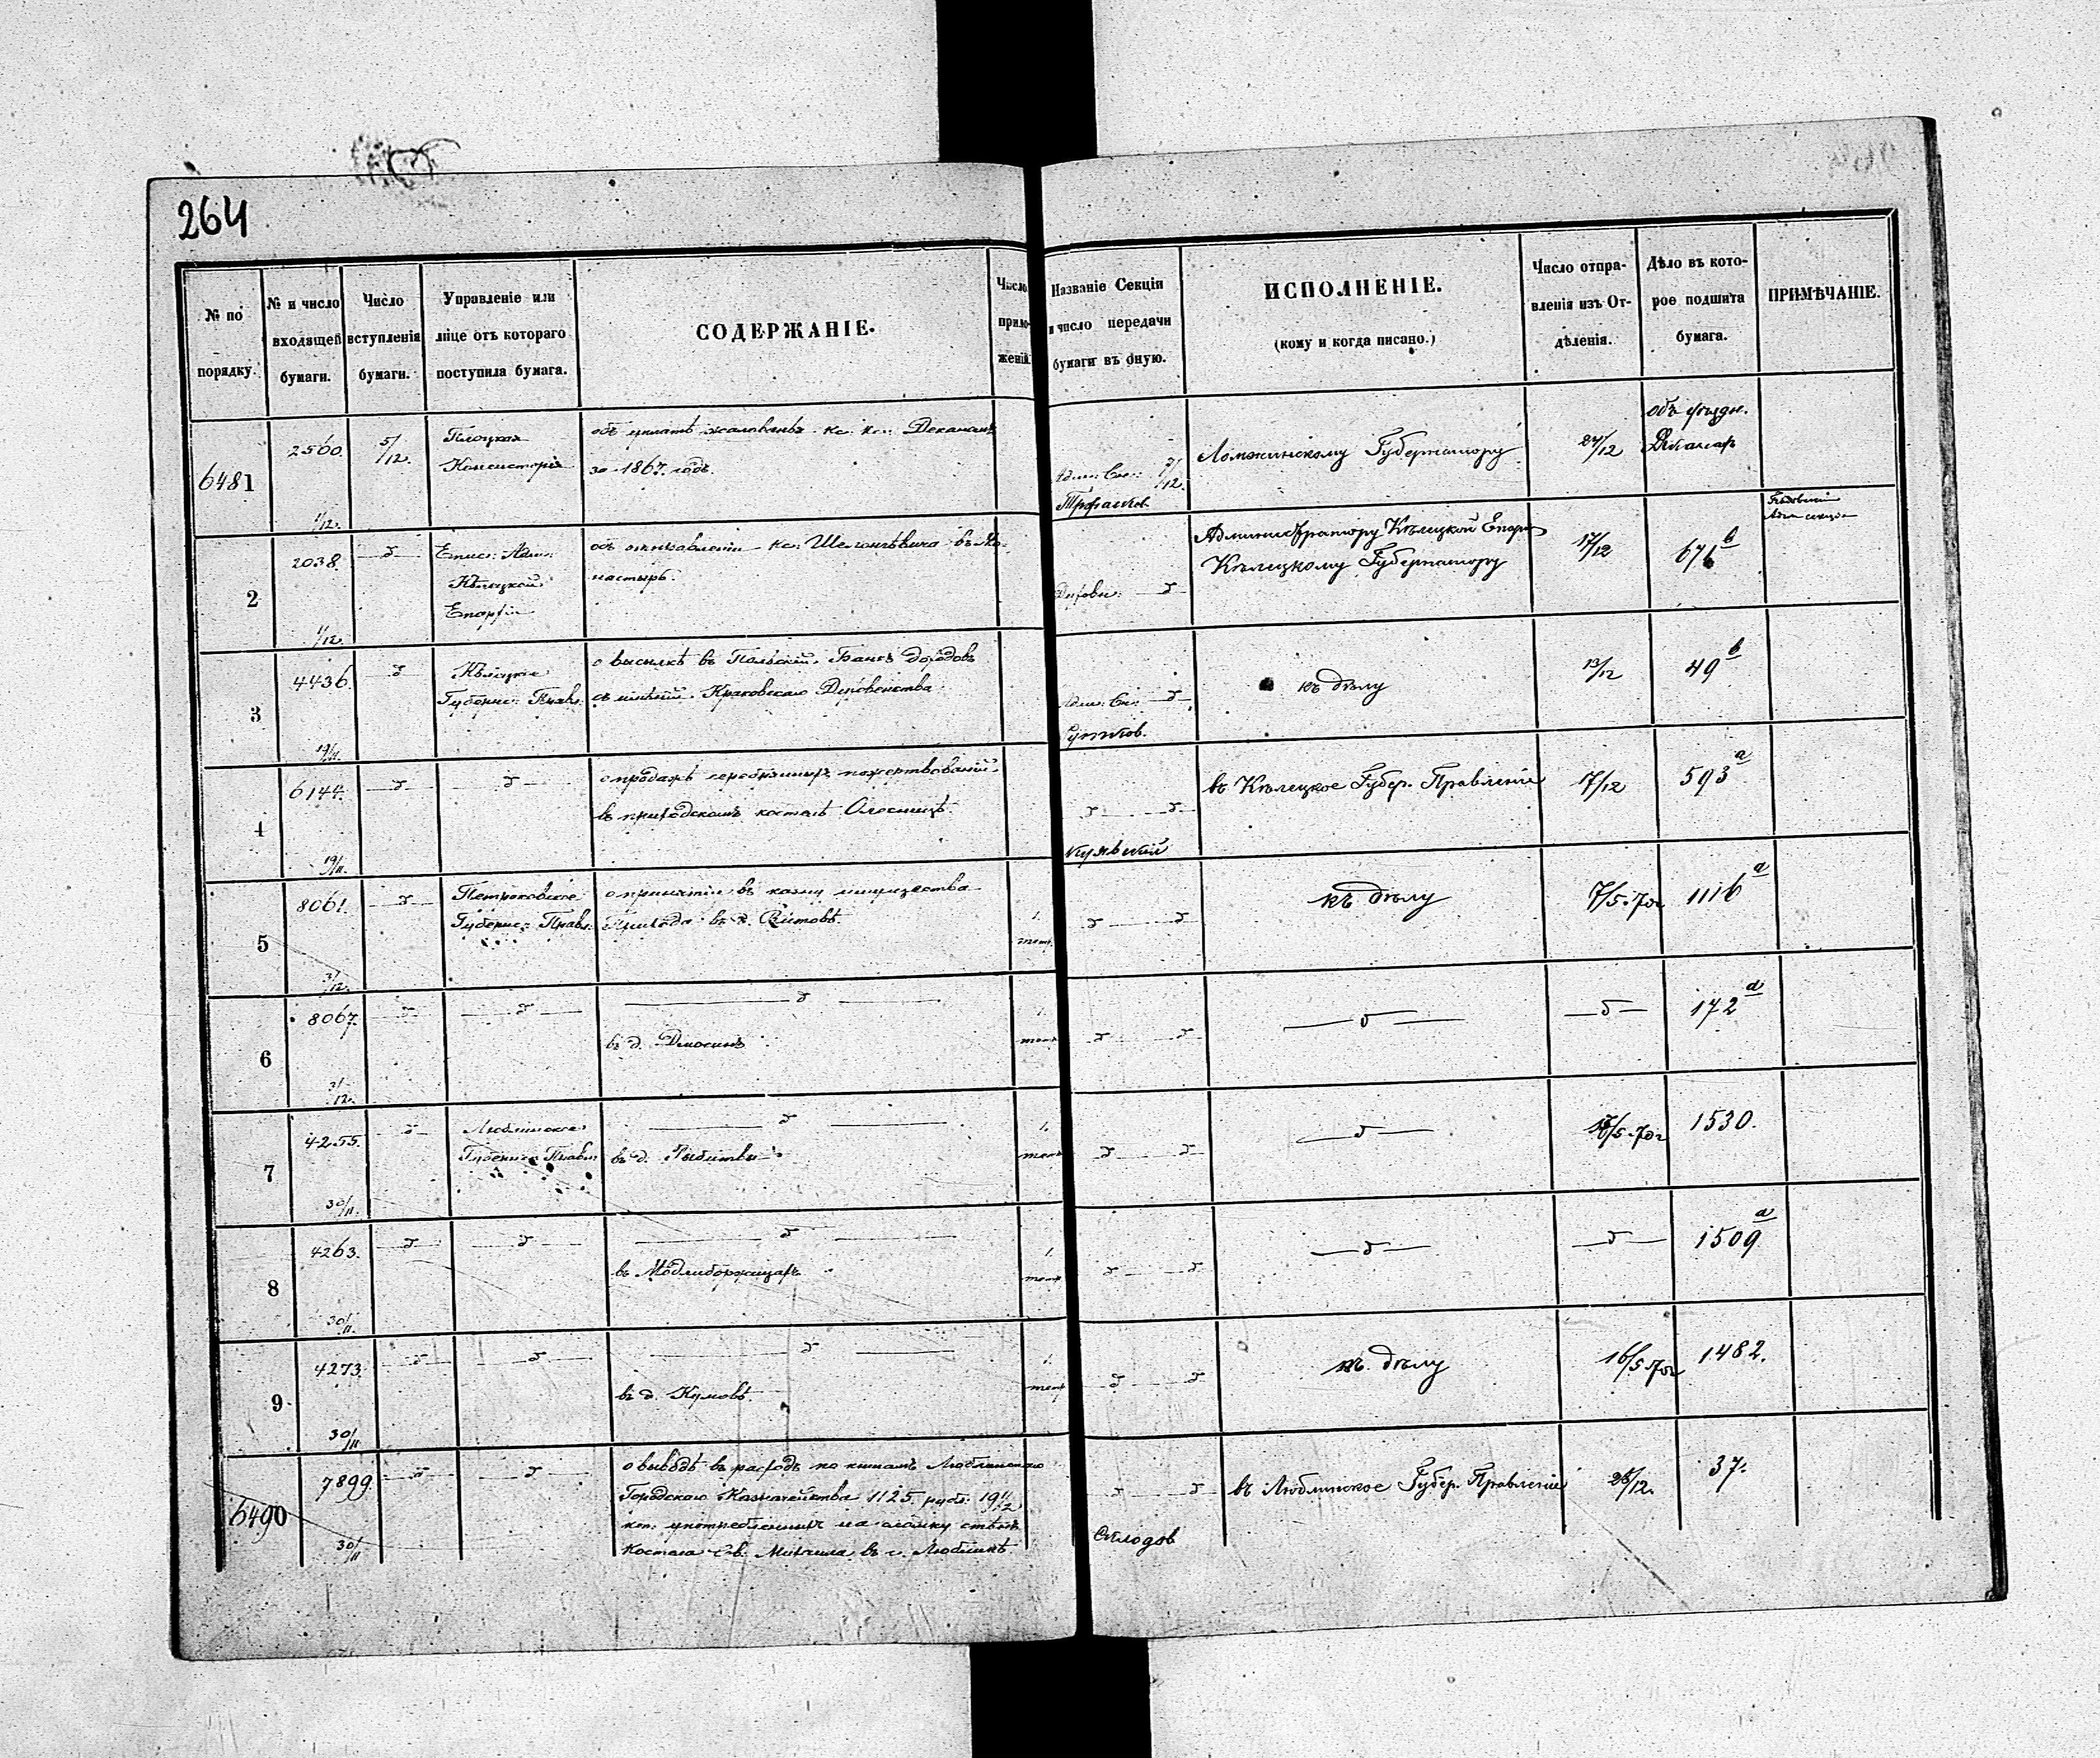 264
№ по порядку.
№ и число входящей бумаги.
Число вступленія бумаги.
Управленіе или лице отъ котораго поступила бумага.
СОДЕРЖАНІЕ.
Число приложеній.
Названіе Секціи и число передачи бумаги въ оную.
ИСПОЛНЕНІЕ.
(кому и когда писано.)
Число отправленія изъ Отдѣленія.
Дѣло въ которое подшита бумага.
ПРИМѢЧАНІЕ.
6481
2560.
1/12.
5/12.
Плоцкая
Консисторія
объ уплатѣ жалованья кс. кс: Деканамъ
за 1867 годъ.
Адм: Сек:
Ломжинскому Губернатору
27/12
объ уѣздн.
Деканах
2
2038.
1/12.
Епис: Адм:
Кѣлецкой
Епархіи
объ отправленіи кс: въ Мо-
настырь.
Духовн:
Администратору Кѣлецкой Епарх
Кѣлецкому Губернатору
17/12
676 b
3
4436.
19/11.
Кѣлецкое
Губернс: Правл:
о высылкѣ въ Польскій Банкъ доходовъ
съ имѣній Краковскаго Духовенства
Адм: Сек:
къ дѣлу
13/12
49 b
4
6144.
19/11.
о продажѣ серебряныхъ пожертвованій
въ приходскомъ костелѣ Олесницѣ.
въ Кѣлецкое Губер. Правленіе
17/12
593 a
5
8061.
3/12.
Петроковское
Губернс: Правл:
о принятіи въ казну имущества
Прихода въ д. Витовѣ.
1.
тетр.
къ дѣлу
7/5 70г
1116 a
6
8067.
3/12.
въ д. Дмосинѣ
1.
тетр
172 a
7
4255.
30/11.
Люблинское
Губернс: Правл:
въ д. Рыбитвы
1.
тетр
16/5 70г
1530.
8
4263.
30/11.
въ Модлиборжицахъ
1.
тетр
1509 a
9
4273.
30/11
въ д. Кумовѣ.
1.
тетр
къ дѣлу
16/5 70г
1482.
6490
7899.
30/11
о выводѣ въ расходъ по книгамъ Люблинскаго
Городскаго Казначейства 1125 рубл. 19 1/2
коп: употребленныхъ на сломку стѣнъ
Костела Св. Михаила въ г. Люблинѣ
въ Люблинское Губер. Правленіе
28/12.
37.